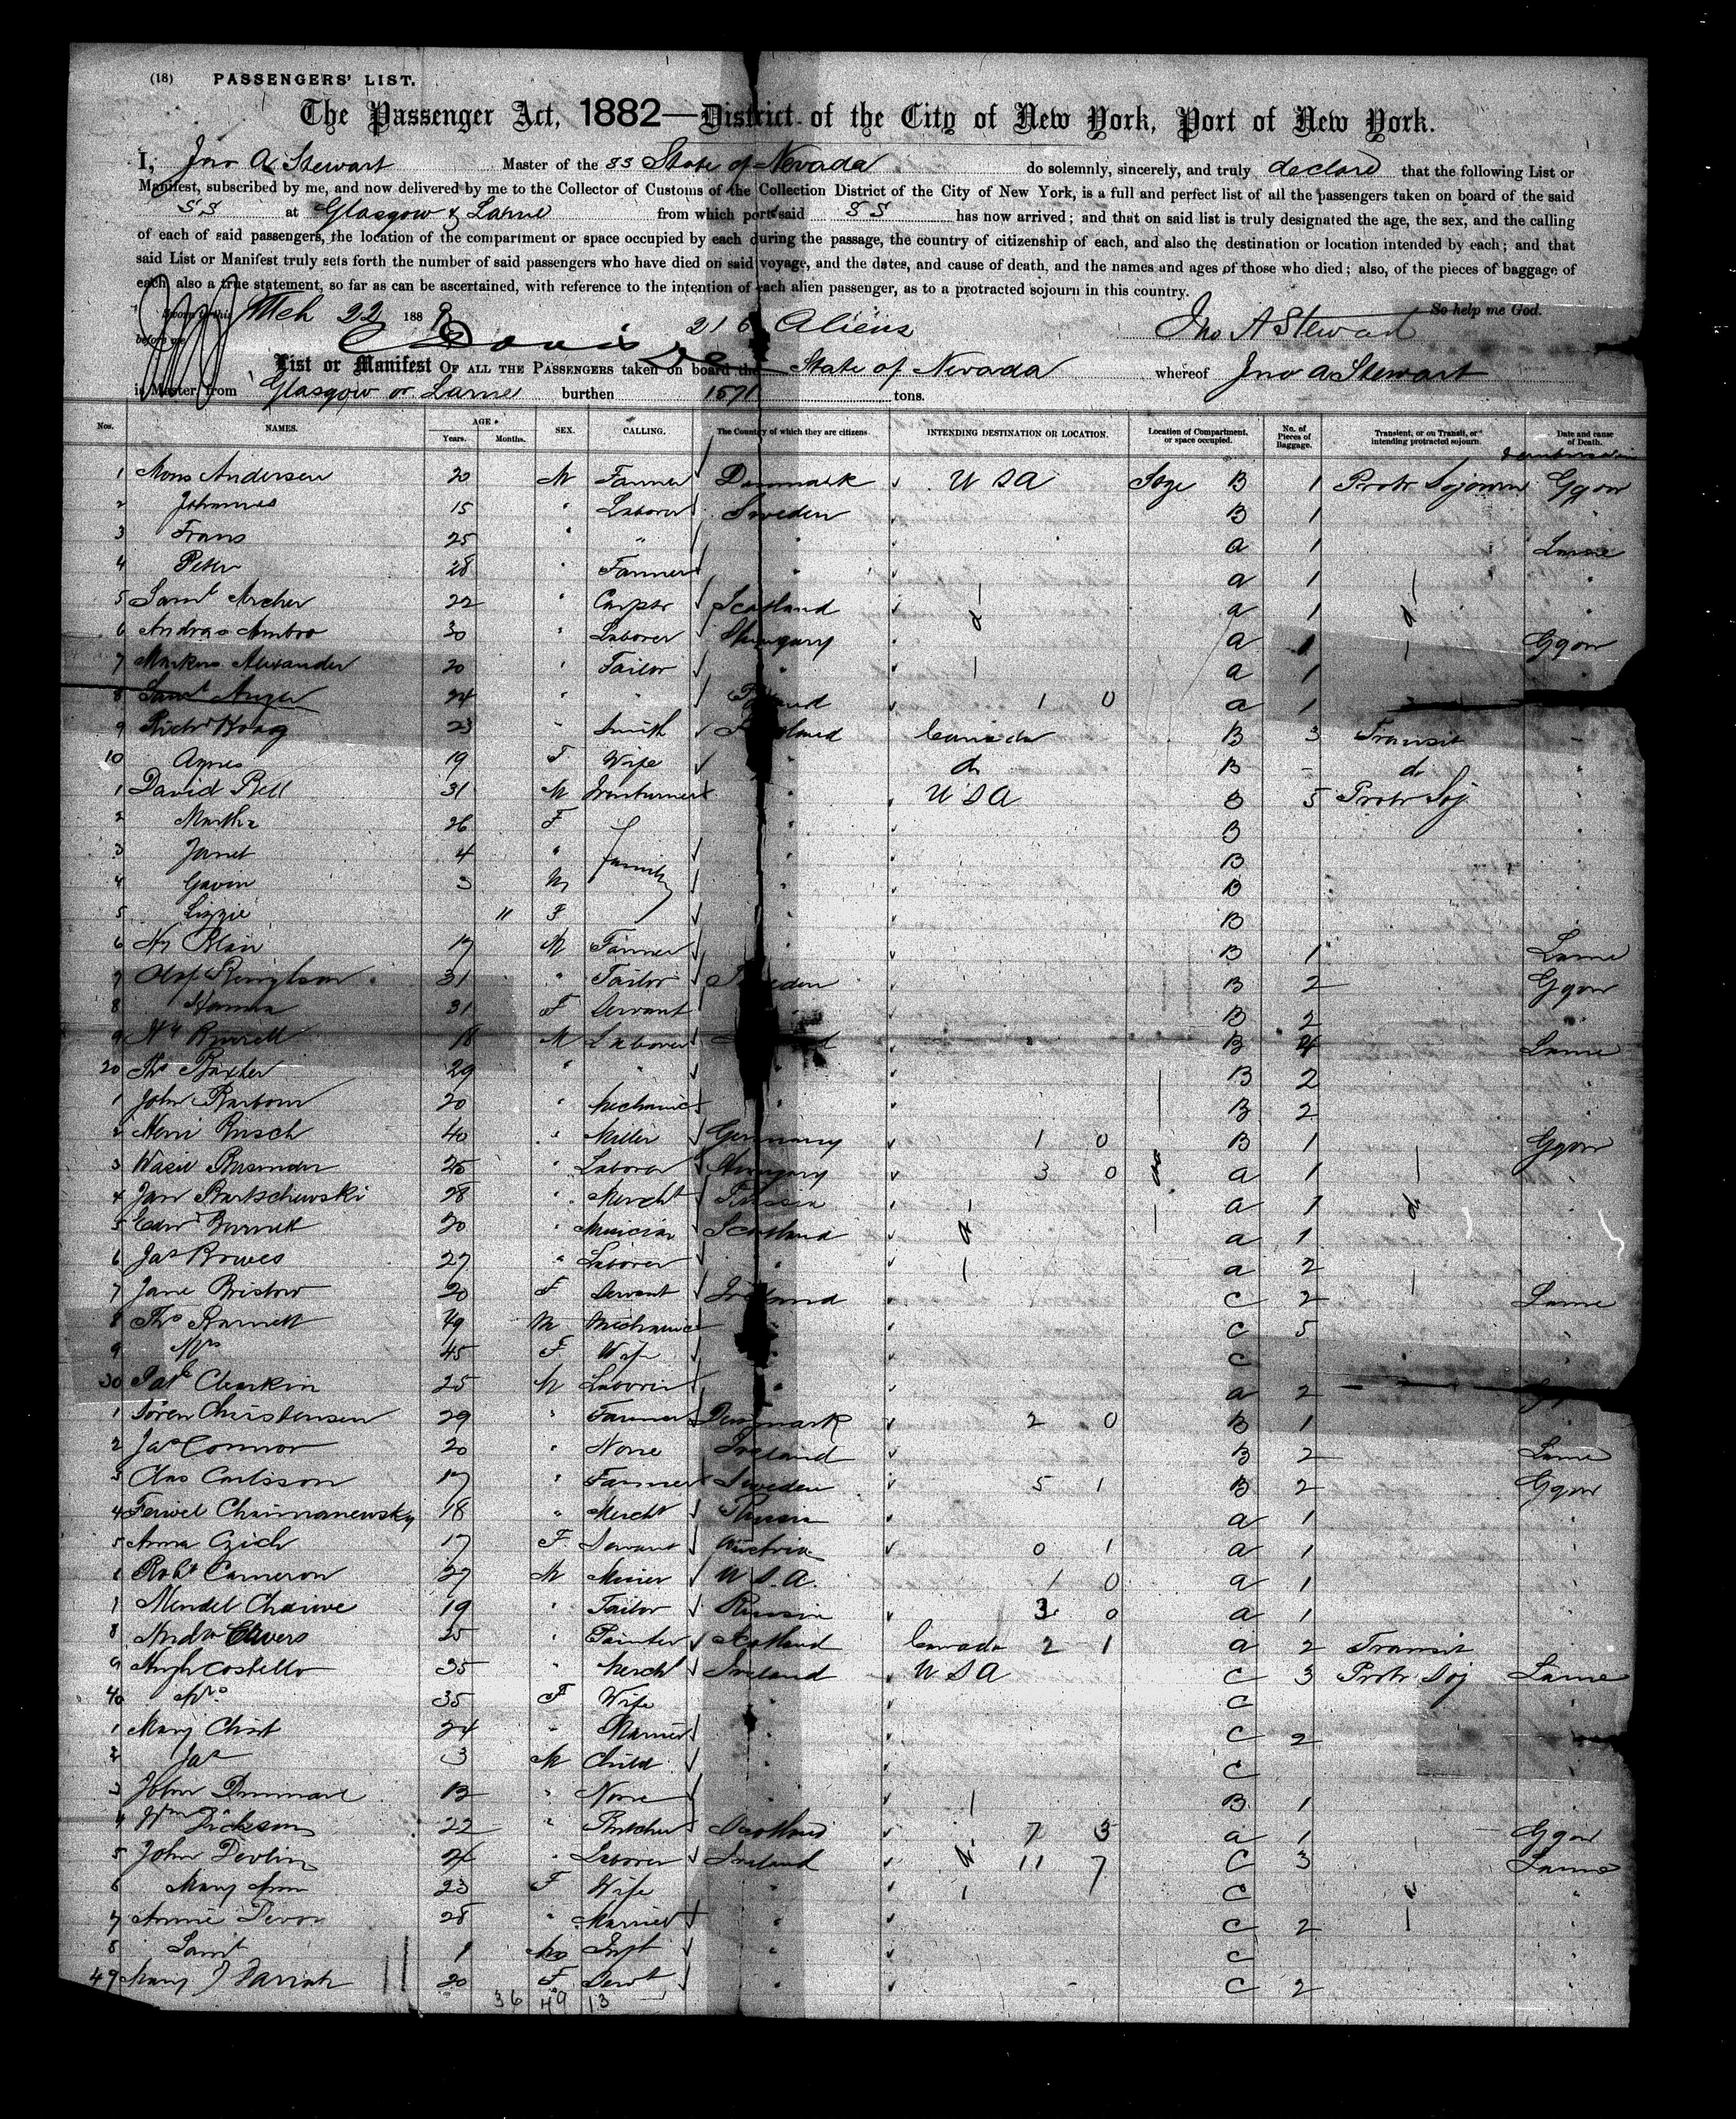 (18) PASSENGERS' LIST.
The Passenger Act, 1882—District of the City of New York, Port of New York.
I, Jno A Stewart Master of the SS State of Nevada do solemnly, sincerely, and truly declare that the following List or
Manifest, subscribed by me, and now delivered by me to the Collector of Customs of the Collection District of the City of New York, is a full and perfect list of all the passengers taken on board of the said
SS at Glasgow & Larne from which port said SS has now arrived; and that on said list is truly designated the age, the sex, and the calling
of each of said passengers, the location of the compartment or space occupied by each during the passage, the country of citizenship of each, and also the destination or location intended by each; and that
said List or Manifest truly sets forth the number of said passengers who have died on said voyage, and the dates, and cause of death, and the names and ages of those who died; also, of the pieces of baggage of
each, also a true statement, so far as can be ascertained, with reference to the intention of each alien passenger, as to a protracted sojourn in this country.
So help me God.
Sworn to this Mch 22 188
before me 216 Aliens Jno A Stewart
List or Manifest OF ALL THE PASSENGERS taken on board the State of Nevada whereof Jno A Stewart
is Master, from Glasgow or Larne burthen 1571 tons.
Nos. NAMES. AGE. Years. Months. SEX. CALLING. The Country of which they are citizens. INTENDING DESTINATION OR LOCATION. Location of Compartment, or space occupied. No. of Pieces of Baggage. Transient, or on Transit, or intending protracted sojourn. Date and cause of Death.
1 Mons Andersen 20 M Farmer Denmark USA Stge B 1 Protr Sojourn Ggow
2 Johannes 15 " Laborer Sweden B 1
3 Frans 25 " " " a 1 Larne
4 Peter 28 " Farmer " a 1 "
5 Saml Archer 22 " Carptr Scotland a 1 "
6 Andras Ambro 30 " Laborer Hungary a 1 Ggow
7 Markus Alexander 20 " Tailor " a 1
8 Saml Anger 24 " " 1 0 a 1
9 23 " Smith Canada B 3 Transit "
10 Agnes 19 F Wife " do B - do "
1 David Bell 31 M Ironturner " USA B 5 Protr Soj "
2 Martha 26 F family " B "
3 Janet 4 " " B "
4 Gavin 3 M " B "
5 Lizzie 11 F " B "
6 Blair 17 M Farmer " B 1 Larne
7 Olof 31 " Tailor Sweden B 2 Ggow
8 Hanna 31 F Servant B 2 "
9 18 M Laborer B 4 Larne
20 Thos Baxter 29 " " " B 2 "
1 John Barbour 20 " Mechanic " B 2 "
2 Busch 40 " Miller Germany 1 0 B 1 Ggow
3 Wasil 25 " Laborer Hungary 3 0 a 1 "
4 Jan Bartschewski 28 " Mercht Russia a 1 "
5 Edwd Burnett 20 " Musician Scotland a 1 "
6 Jas Bowes 27 " Laborer " a 2 "
7 Jane Bristow 20 F Servant Ireland C 2 Larne
8 Thos Barnett 49 M Mechanic C 5 "
9 Mrs 45 F Wife C "
30 Patk Clearkin 25 M Laborer " a 2 Ggow
1 Soren Christensen 29 " Farmer Denmark 2 0 B 1 "
2 Jas Connor 20 " None Ireland B 2 Larne
3 Clas Carlsson 17 " Farmer Sweden 5 1 B 2 Ggow
4 Chaimanewsky 18 " Mercht Russia a 1 "
5 Anna Czich 17 F Servant Austria 0 1 a 1 "
6 Robt Cameron 27 M Miner U.S.A. 1 0 a 1 "
7 Mendel Chaiwe 19 " Tailor Russia 3 0 a 1 "
8 Andw Cavers 25 " Painter Scotland Canada 2 1 a 2 Transit "
9 Hugh Costello 35 " Mercht Ireland USA C 3 Protr Soj Larne
40 Mrs 35 F Wife " C "
1 Mary 24 " Married " C 2 "
2 Jas 3 M Child " C "
3 John 13 " None " B 1 "
4 Wm Dickson 22 " Butcher Scotland 7 3 a 1 Ggow
5 John Devlin 24 " Laborer Ireland 11 7 C 3 Larne
6 Mary Ann 23 F Wife " C "
7 Annie 28 " Married " C 2 "
8 Saml 1 Mo Inft " C "
49 Mary J 20 F Servt " C 2 "
36 49 13